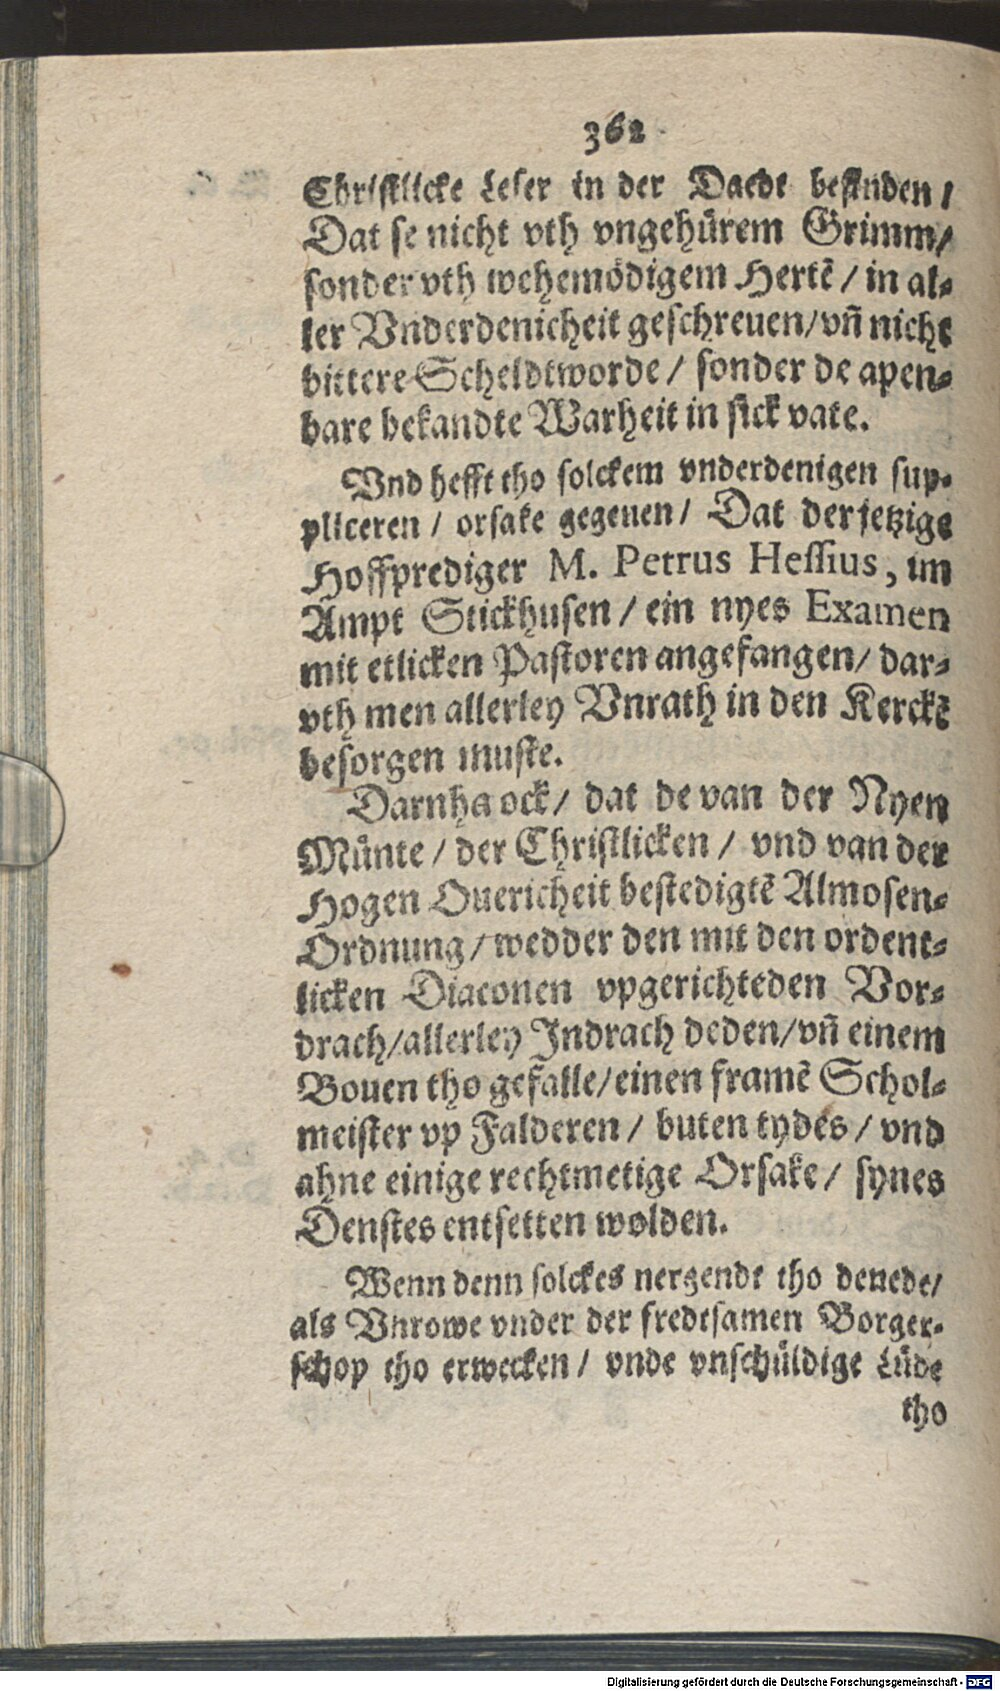 362
Christlicke Leser in der Daedt befinden /
Dat se nicht vth vngehürem Grimm/
sonder vth wehemödigem Hertē / in al-
ler Vnderdenicheit geschreuen/vñ nicht
bittere Scheldtworde / sonder de apen-
bare bekandte Warheit in sick vate.
Vnd hefft tho solckem vnderdenigen sup-
pliceren / orsake gegeuen / Dat der jetzige
Hoffprediger M. Petrus Hessius, im
Ampt Stickhusen / ein nyes Examen
mit etlicken Pastoren angefangen / dar-
vth men allerley Vnrath in den Kerckē
besorgen muste.
Darnha ock / dat de van der Nyen
Münte / der Christlicken / vnd van der
Hogen Ouericheit bestedigtē Almosen-
Ordnung / wedder den mit den ordent-
licken Diaconen vpgerichteden Vor-
drach/allerley Indrach deden/vñ einem
Bouen tho gefalle/einen framē Schol-
meister vp Falderen / buten tydes / vnd
ahne einige rechtmetige Orsake / synes
Denstes entsetten wolden.
Wenn denn solckes nergendt tho denede/
als Vnrowe vnder der fredtsamen Borger-
schop tho erwecken / vnde vnschüldige Lüde
tho
Digitalisierung gefördert durch die Deutsche Forschungsgemeinschaft - DFG